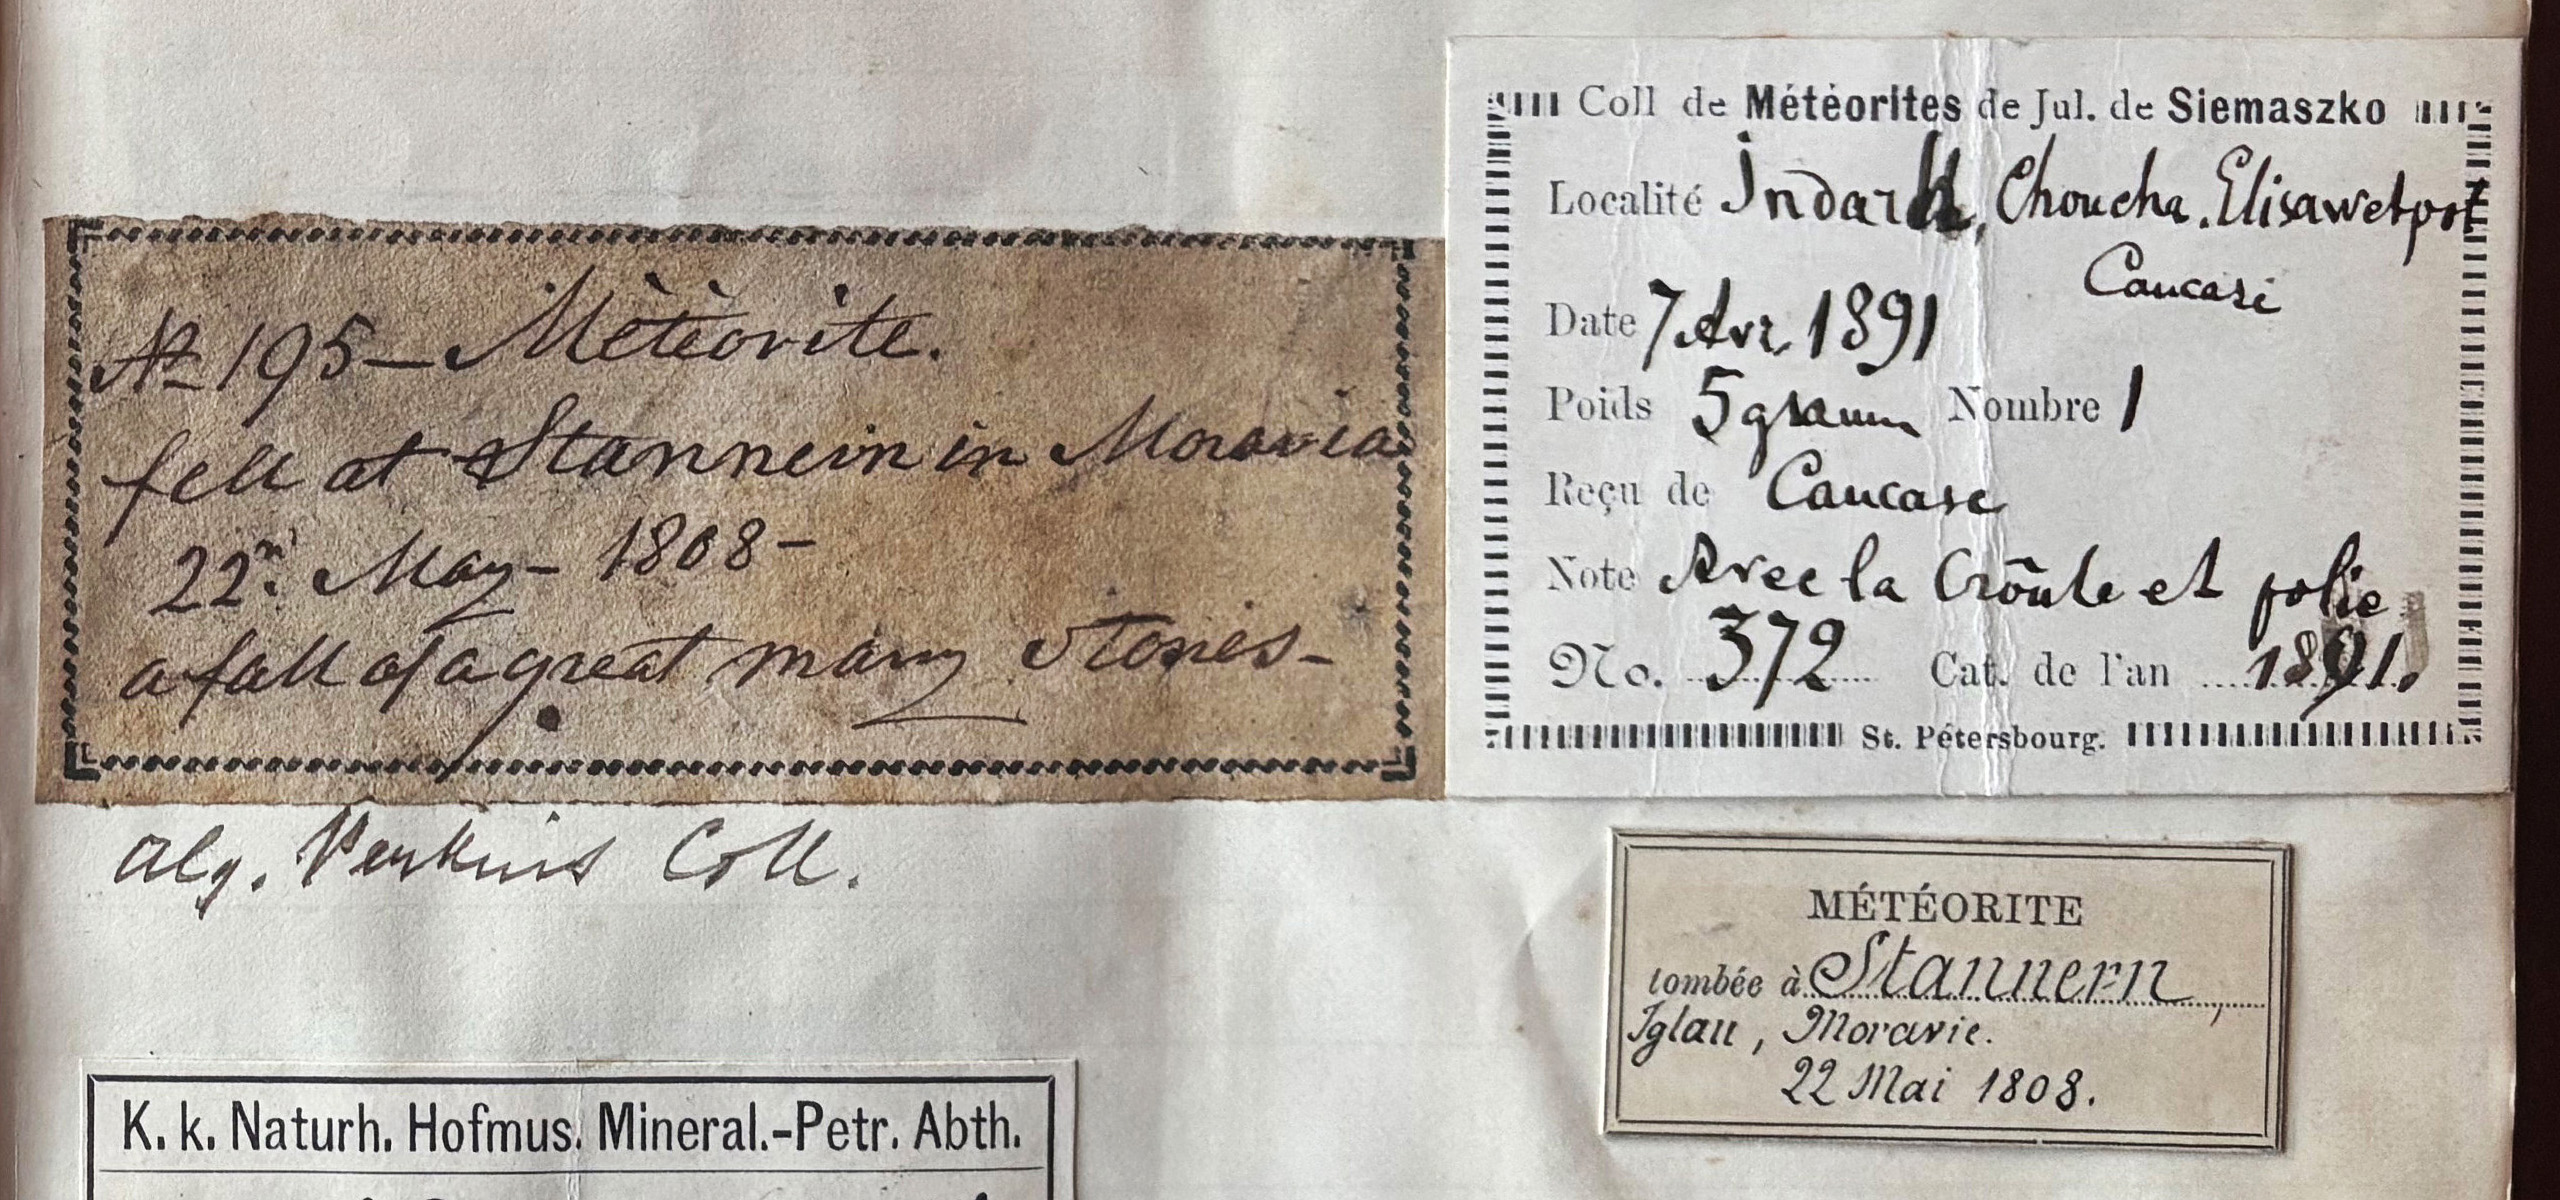 № 195 – Mètèorite.
fell at Stannern in Moravia
22nd. May – 1808 –
a fall of a great many stones –
Alg. Perkins Coll.
Coll de Météorites de Jul. de Siemaszko
Localité Indarkh, Choucha, Elisawetpol
Caucase
Date 7 Avr. 1891
Poids 5 gramm Nombre 1
Reçu de Caucase
Note Avec la Croûte et polie
No. 372 Cat. de l'an 1891.
St. Pétersbourg.
MÉTÉORITE
tombée à Stannern,
Iglau, Moravie.
22 Mai 1808.
K. k. Naturh. Hofmus. Mineral.-Petr. Abth.